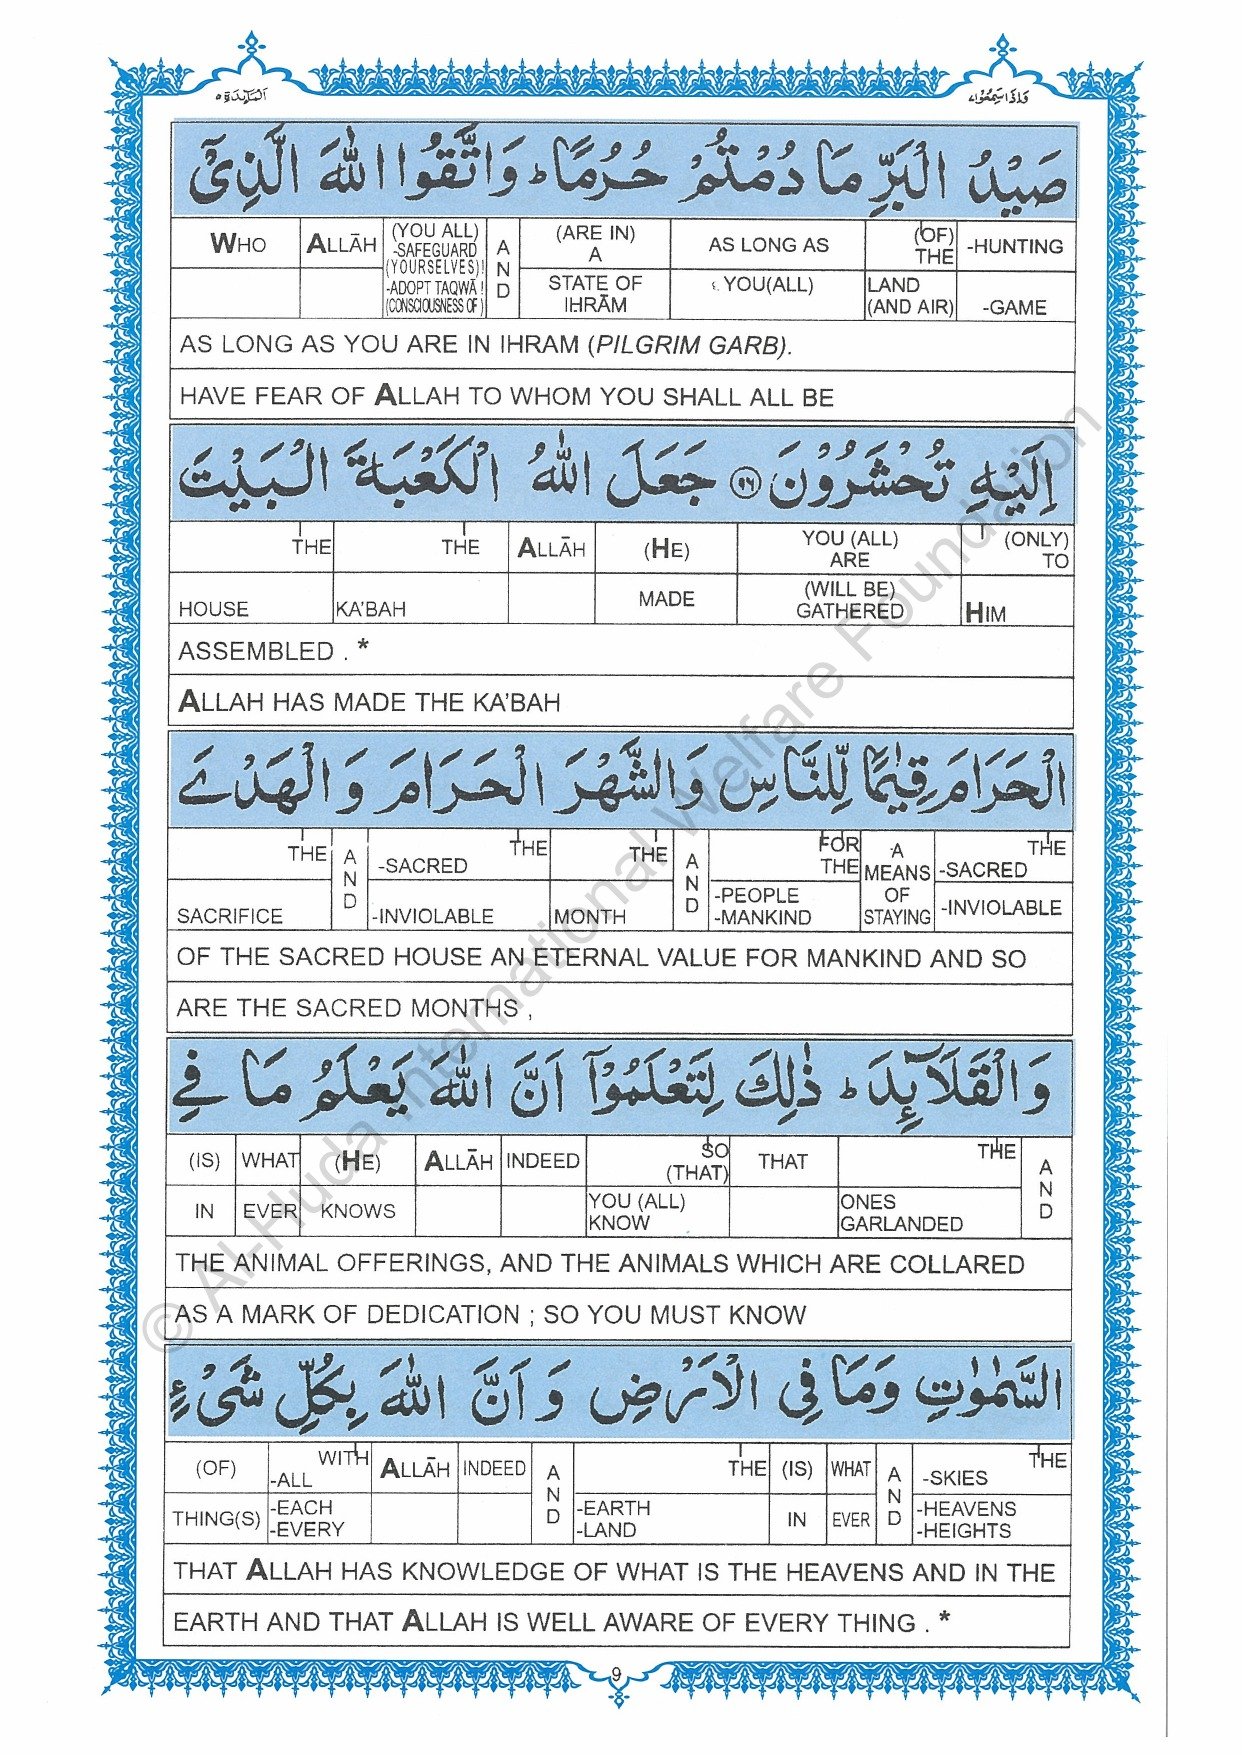 وَاِذَا سَمِعُوْا ٧ اَلْمَآئِدَة ٥
صَيْدُ الْبَرِّ مَا دُمْتُمْ حُرُمًا ؕ وَاتَّقُوا اللّٰهَ الَّذِيْٓ
WHO ALLĀH (YOU ALL) -SAFEGUARD (YOURSELVES)! -ADOPT TAQWĀ ! (CONSCIOUSNESS OF ) AND (ARE IN) A STATE OF IḤRĀM AS LONG AS YOU(ALL) (OF) THE LAND (AND AIR) -HUNTING -GAME
AS LONG AS YOU ARE IN IHRAM (PILGRIM GARB).
HAVE FEAR OF ALLAH TO WHOM YOU SHALL ALL BE
اِلَيْهِ تُحْشَرُوْنَ ﴿٩٦﴾ جَعَلَ اللّٰهُ الْكَعْبَةَ الْبَيْتَ
THE HOUSE THE KA'BAH ALLĀH (HE) MADE YOU (ALL) ARE (WILL BE) GATHERED (ONLY) TO HIM
ASSEMBLED . *
ALLAH HAS MADE THE KA'BAH
الْحَرَامَ قِيٰمًا لِّلنَّاسِ وَالشَّهْرَ الْحَرَامَ وَالْهَدْيَ
THE SACRIFICE AND THE -SACRED -INVIOLABLE THE MONTH AND FOR THE -PEOPLE -MANKIND A MEANS OF STAYING THE -SACRED -INVIOLABLE
OF THE SACRED HOUSE AN ETERNAL VALUE FOR MANKIND AND SO
ARE THE SACRED MONTHS ,
وَالْقَلَآئِدَ ؕ ذٰلِكَ لِتَعْلَمُوْٓا اَنَّ اللّٰهَ يَعْلَمُ مَا فِي
(IS) IN WHAT EVER (HE) KNOWS ALLĀH INDEED SO (THAT) YOU (ALL) KNOW THAT THE ONES GARLANDED AND
THE ANIMAL OFFERINGS, AND THE ANIMALS WHICH ARE COLLARED
AS A MARK OF DEDICATION ; SO YOU MUST KNOW
السَّمٰوٰتِ وَمَا فِي الْاَرْضِ وَاَنَّ اللّٰهَ بِكُلِّ شَيْءٍ
(OF) THING(S) WITH -ALL -EACH -EVERY ALLĀH INDEED AND THE -EARTH -LAND (IS) IN WHAT EVER AND THE -SKIES -HEAVENS -HEIGHTS
THAT ALLAH HAS KNOWLEDGE OF WHAT IS THE HEAVENS AND IN THE
EARTH AND THAT ALLAH IS WELL AWARE OF EVERY THING . *
9
© Al-Huda International Welfare Foundation